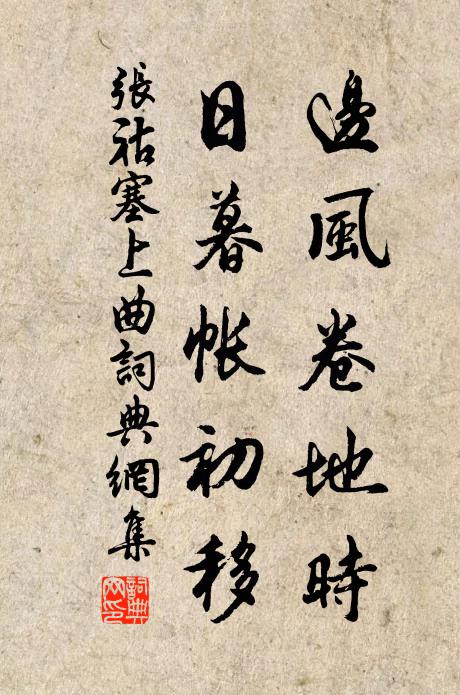 邊風卷地時
日暮帳初移
張祜塞上曲詞典網集
詞典
网印